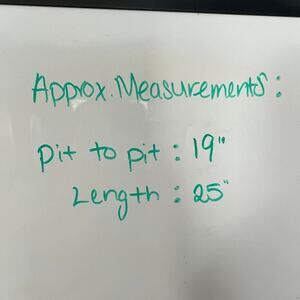 Approx. Measurements:
Pit to pit : 19"
Length : 25"